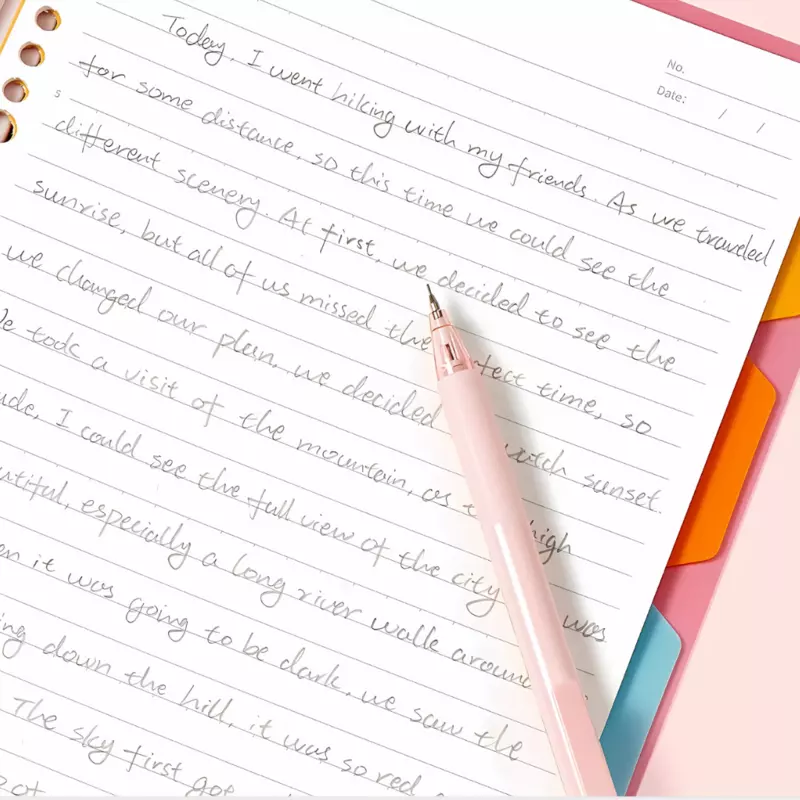 No.
Date: / /
Today, I went hiking with my friends. As we traveled
for some distance, so this time we could see the
different scenery. At first, we decided to see the
sunrise, but all of us missed the time, so
we changed our plan, we decided sunset.
took a visit of the mountain, as high
I could see the full view of the city was
especially a long river walk around
it was going to be dark, we saw the
down the hill, it was so red
The sky first got